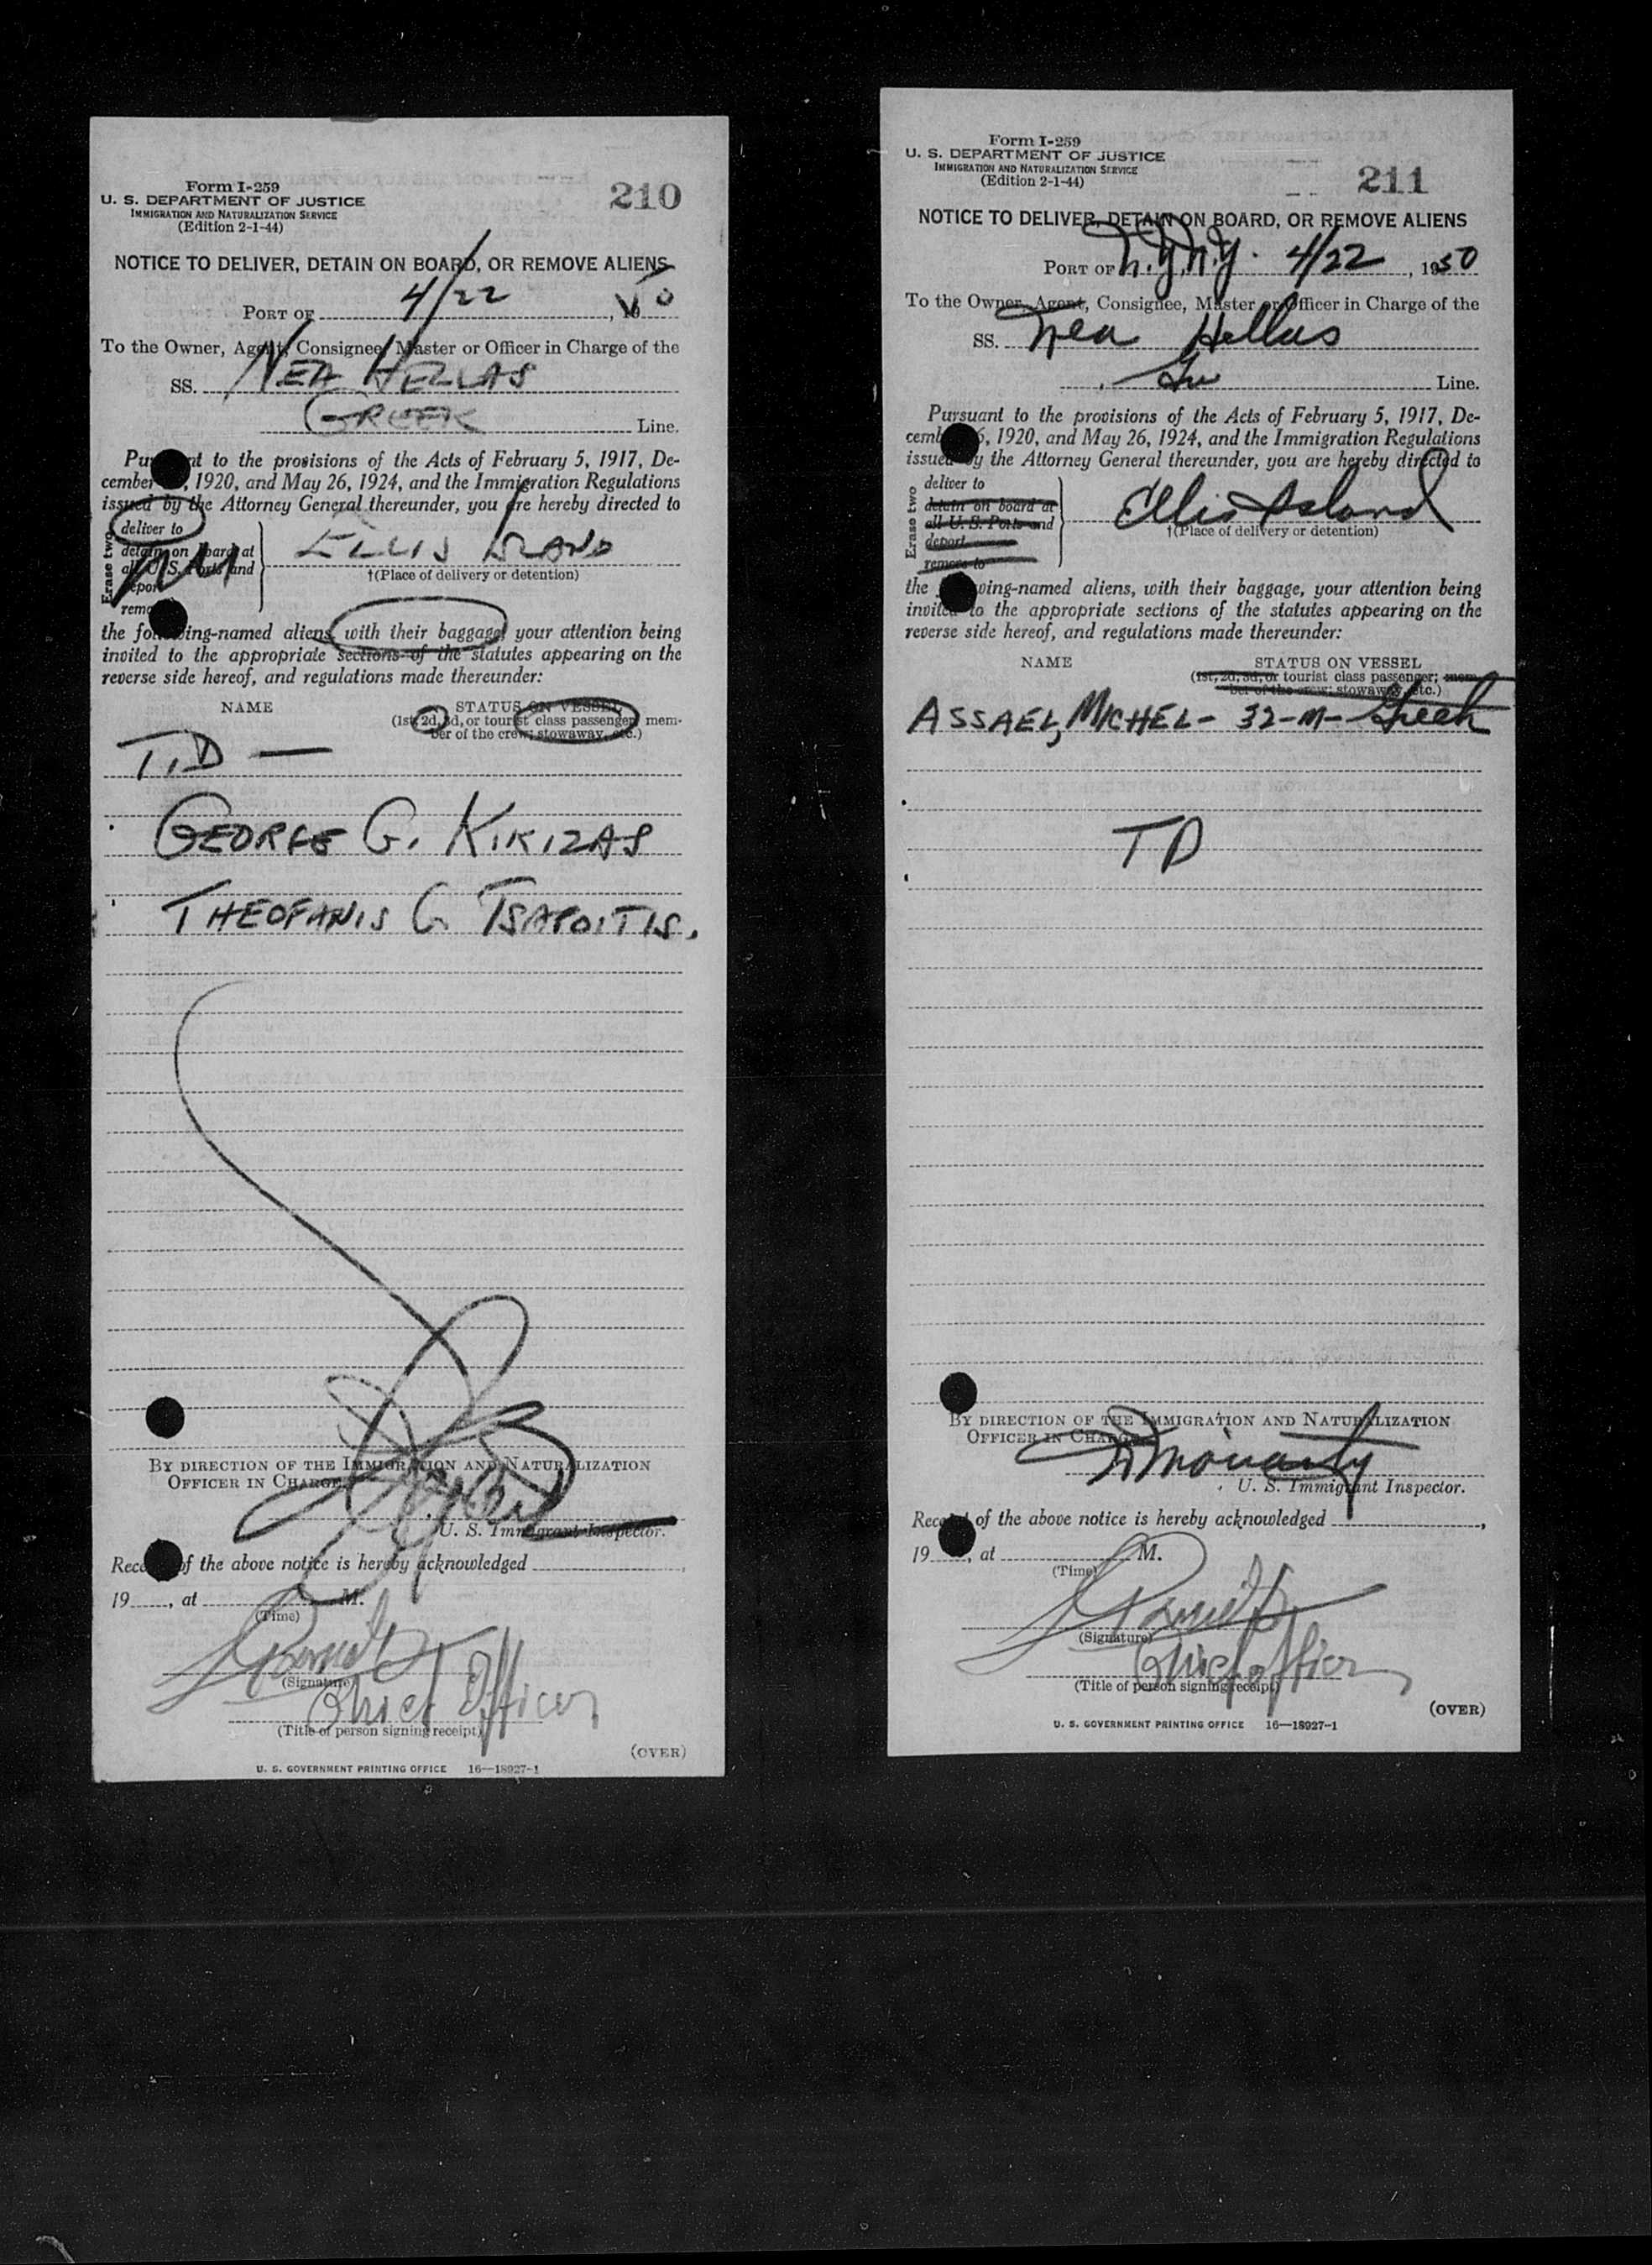 Form I-259
U. S. DEPARTMENT OF JUSTICE
IMMIGRATION AND NATURALIZATION SERVICE
(Edition 2-1-44)
210
NOTICE TO DELIVER, DETAIN ON BOARD, OR REMOVE ALIENS
PORT OF 4/22, 1950
To the Owner, Agent, Consignee, Master or Officer in Charge of the
SS. NEA HELLAS
GREEK Line.
Pursuant to the provisions of the Acts of February 5, 1917, De-
cember , 1920, and May 26, 1924, and the Immigration Regulations
issued by the Attorney General thereunder, you are hereby directed to
Erase two
deliver to
detain on board at
all U. S. Ports and
deport
remo
ELLIS ISLAND
†(Place of delivery or detention)
the following-named aliens, with their baggage, your attention being
invited to the appropriate sections of the statutes appearing on the
reverse side hereof, and regulations made thereunder:
NAME STATUS ON VESSEL
(1st, 2d, 3d, or tourist class passenger, mem-
ber of the crew; stowaway, etc.)
T.D —
GEORGE G. KIKIZAS
THEOFANIS G TSAPOITIS.
BY DIRECTION OF THE IMMIGRATION AND NATURALIZATION
OFFICER IN CHARGE
U. S. Immigrant Inspector.
Receipt of the above notice is hereby acknowledged
19 , at M.
(Time)
(Signature)
Chief Officer
(Title of person signing receipt)
(OVER)
U. S. GOVERNMENT PRINTING OFFICE 16—18927-1
Form I-259
U. S. DEPARTMENT OF JUSTICE
IMMIGRATION AND NATURALIZATION SERVICE
(Edition 2-1-44)
211
NOTICE TO DELIVER, DETAIN ON BOARD, OR REMOVE ALIENS
PORT OF N.Y.N.Y. 4/22, 1950
To the Owner, Agent, Consignee, Master or Officer in Charge of the
SS. Nea Hellas
Line.
Pursuant to the provisions of the Acts of February 5, 1917, De-
cemb 6, 1920, and May 26, 1924, and the Immigration Regulations
issued by the Attorney General thereunder, you are hereby directed to
Erase two
deliver to
detain on board at
all U. S. Ports and
deport
remove to
Ellis Island
†(Place of delivery or detention)
the following-named aliens, with their baggage, your attention being
invited to the appropriate sections of the statutes appearing on the
reverse side hereof, and regulations made thereunder:
NAME STATUS ON VESSEL
(1st, 2d, 3d, or tourist class passenger; mem-
ber of the crew; stowaway, etc.)
ASSAEL, MICHEL - 32 - M - Greek
TD
BY DIRECTION OF THE IMMIGRATION AND NATURALIZATION
OFFICER IN CHARGE
Moriarty
U. S. Immigrant Inspector.
Receipt of the above notice is hereby acknowledged ,
19 , at M.
(Time)
(Signature)
Chief officer
(Title of person signing receipt)
(OVER)
U. S. GOVERNMENT PRINTING OFFICE 16—18927-1